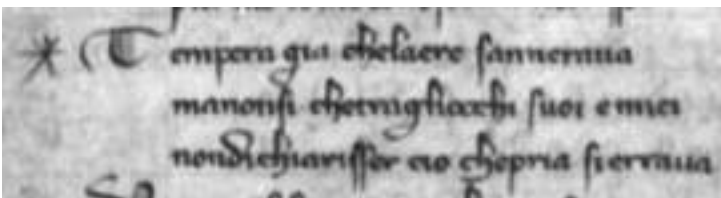 Tempera gia chelaere sanneraua
manonsi chetragliocchi suoi emiei
nondichiarisser cio chepria sierraua